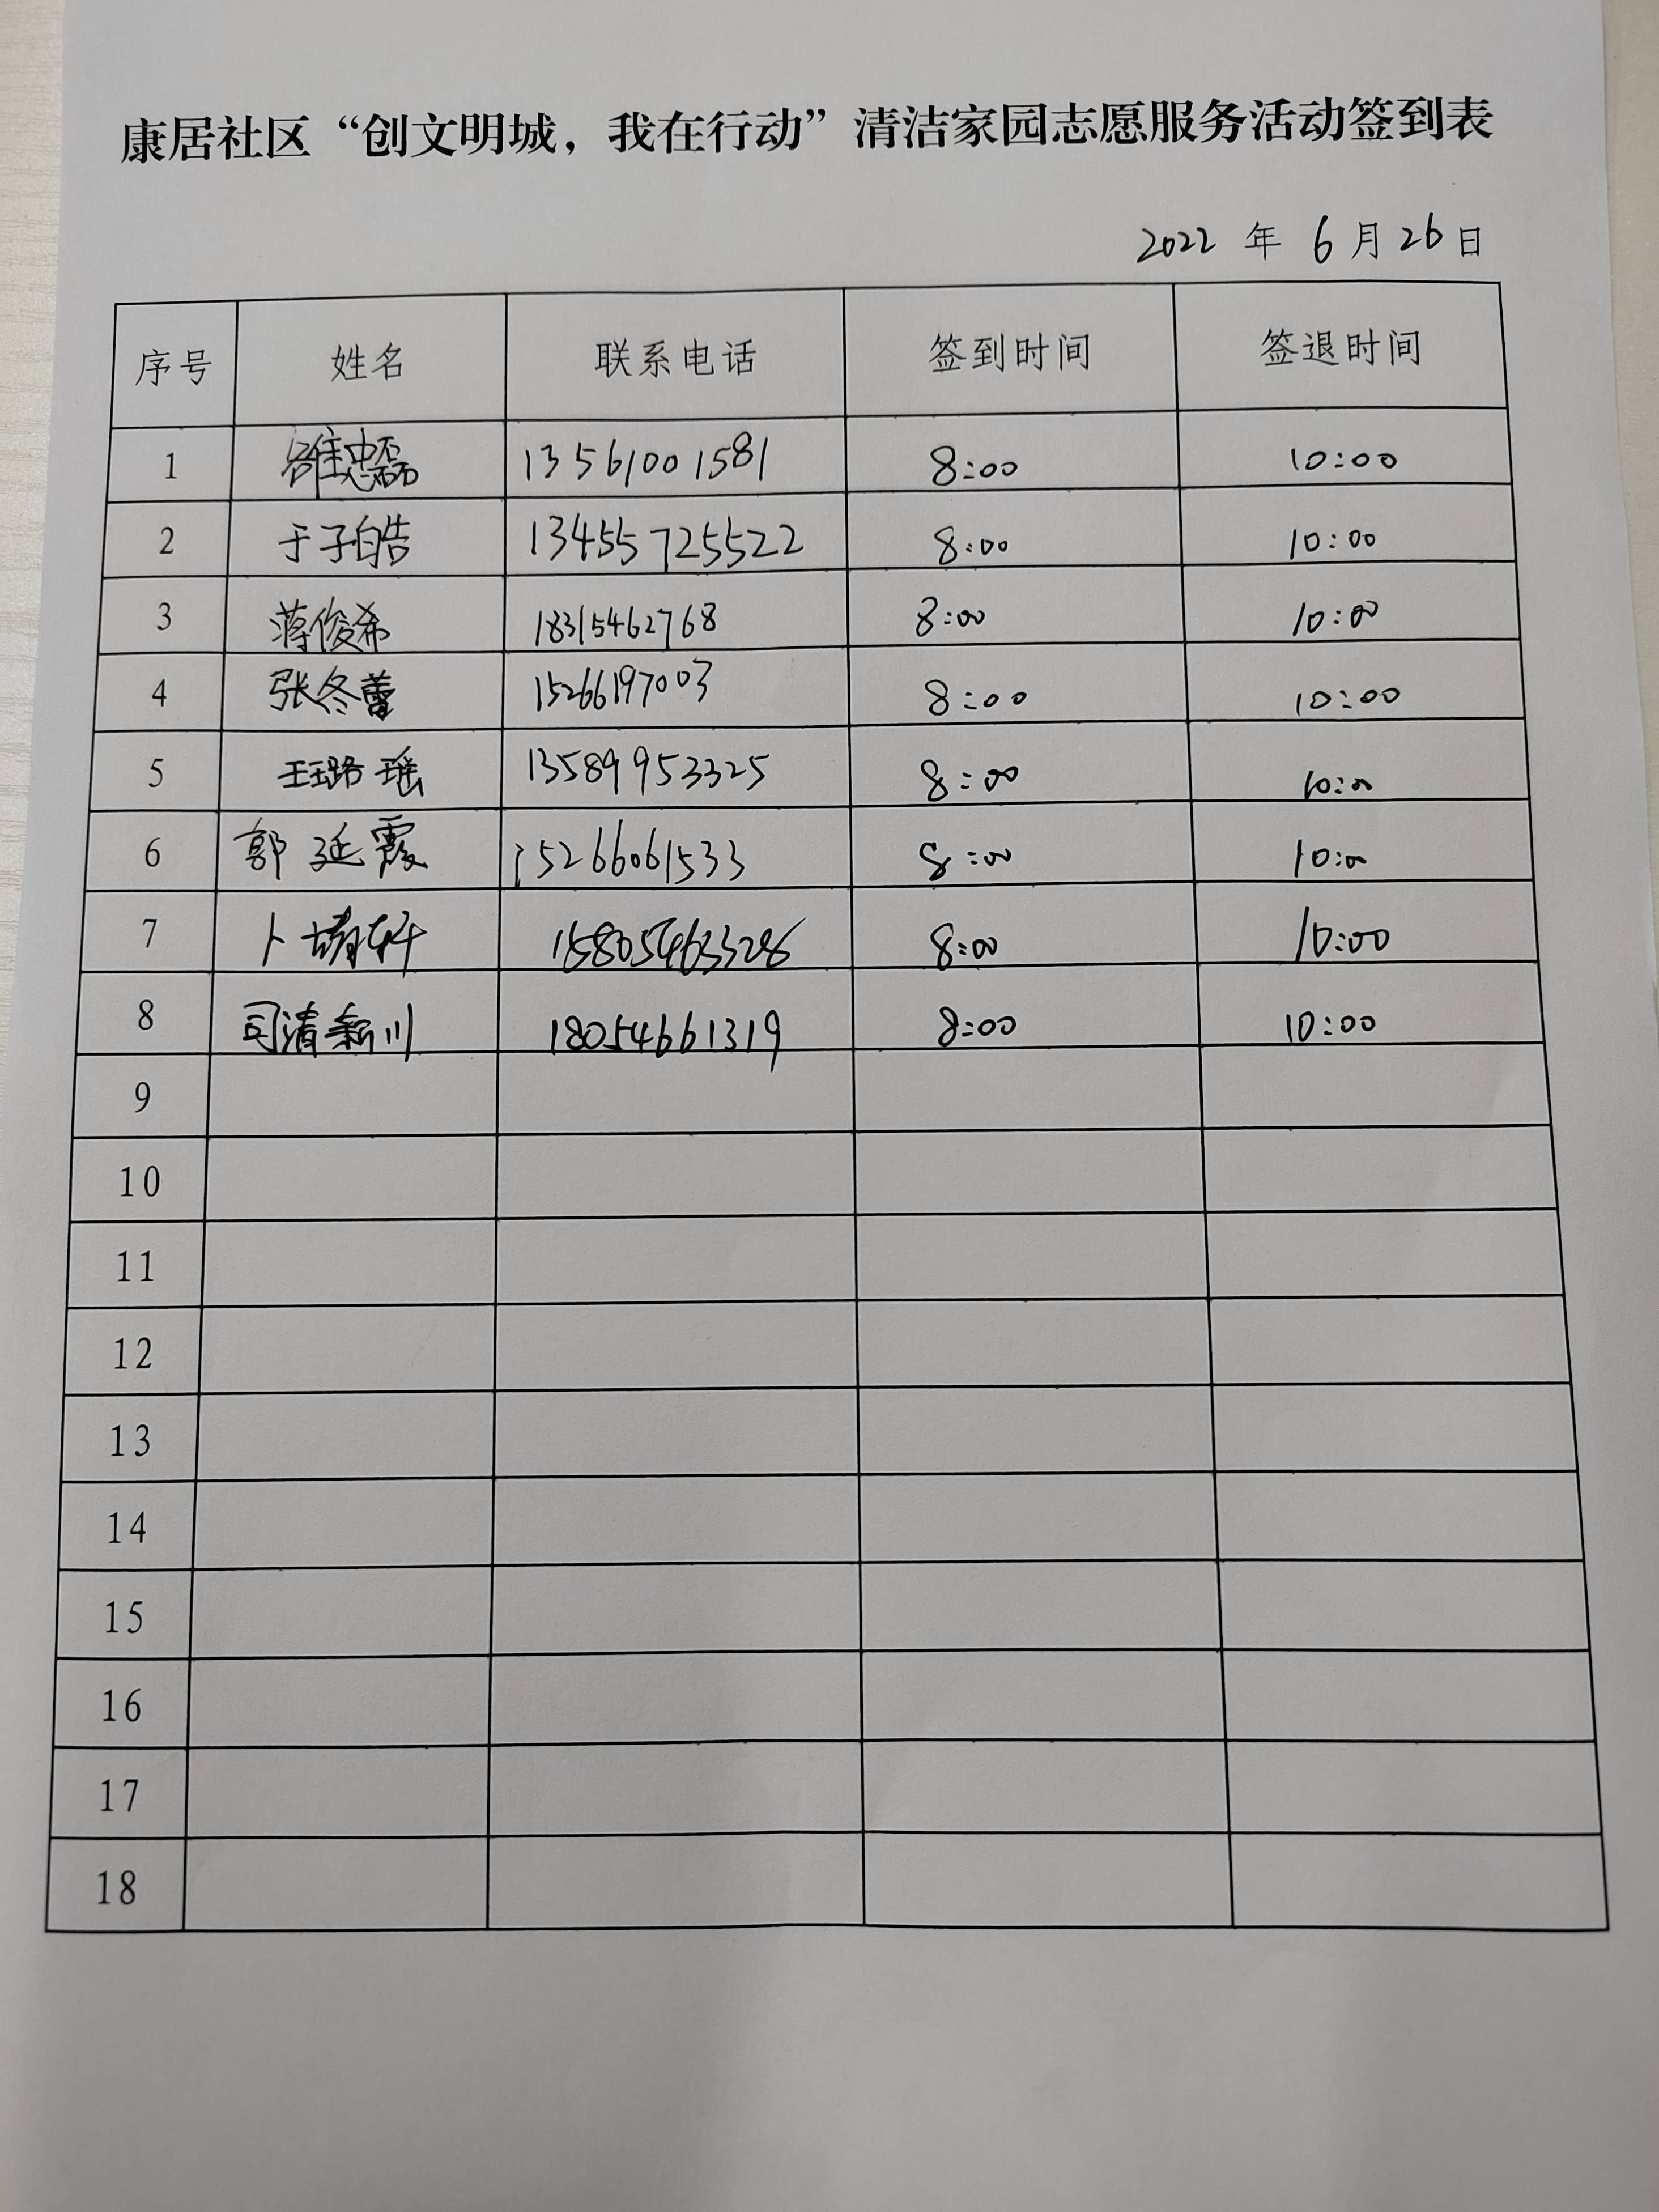 康居社区“创文明城，我在行动”清洁家园志愿服务活动签到表
2022 年 6 月 26 日
序号 姓名 联系电话 签到时间 签退时间
1 雒忠磊 13561001581 8:00 10:00
2 于子皓 13455725522 8:00 10:00
3 蒋俊希 18315462768 8:00 10:00
4 张冬蕾 15266197003 8:00 10:00
5 王璐瑶 13589953325 8:00 10:00
6 郭延霞 15266061533 8:00 10:00
7 卜靖轩 15805463328 8:00 10:00
8 司清 川 18054661319 8:00 10:00
9
10
11
12
13
14
15
16
17
18